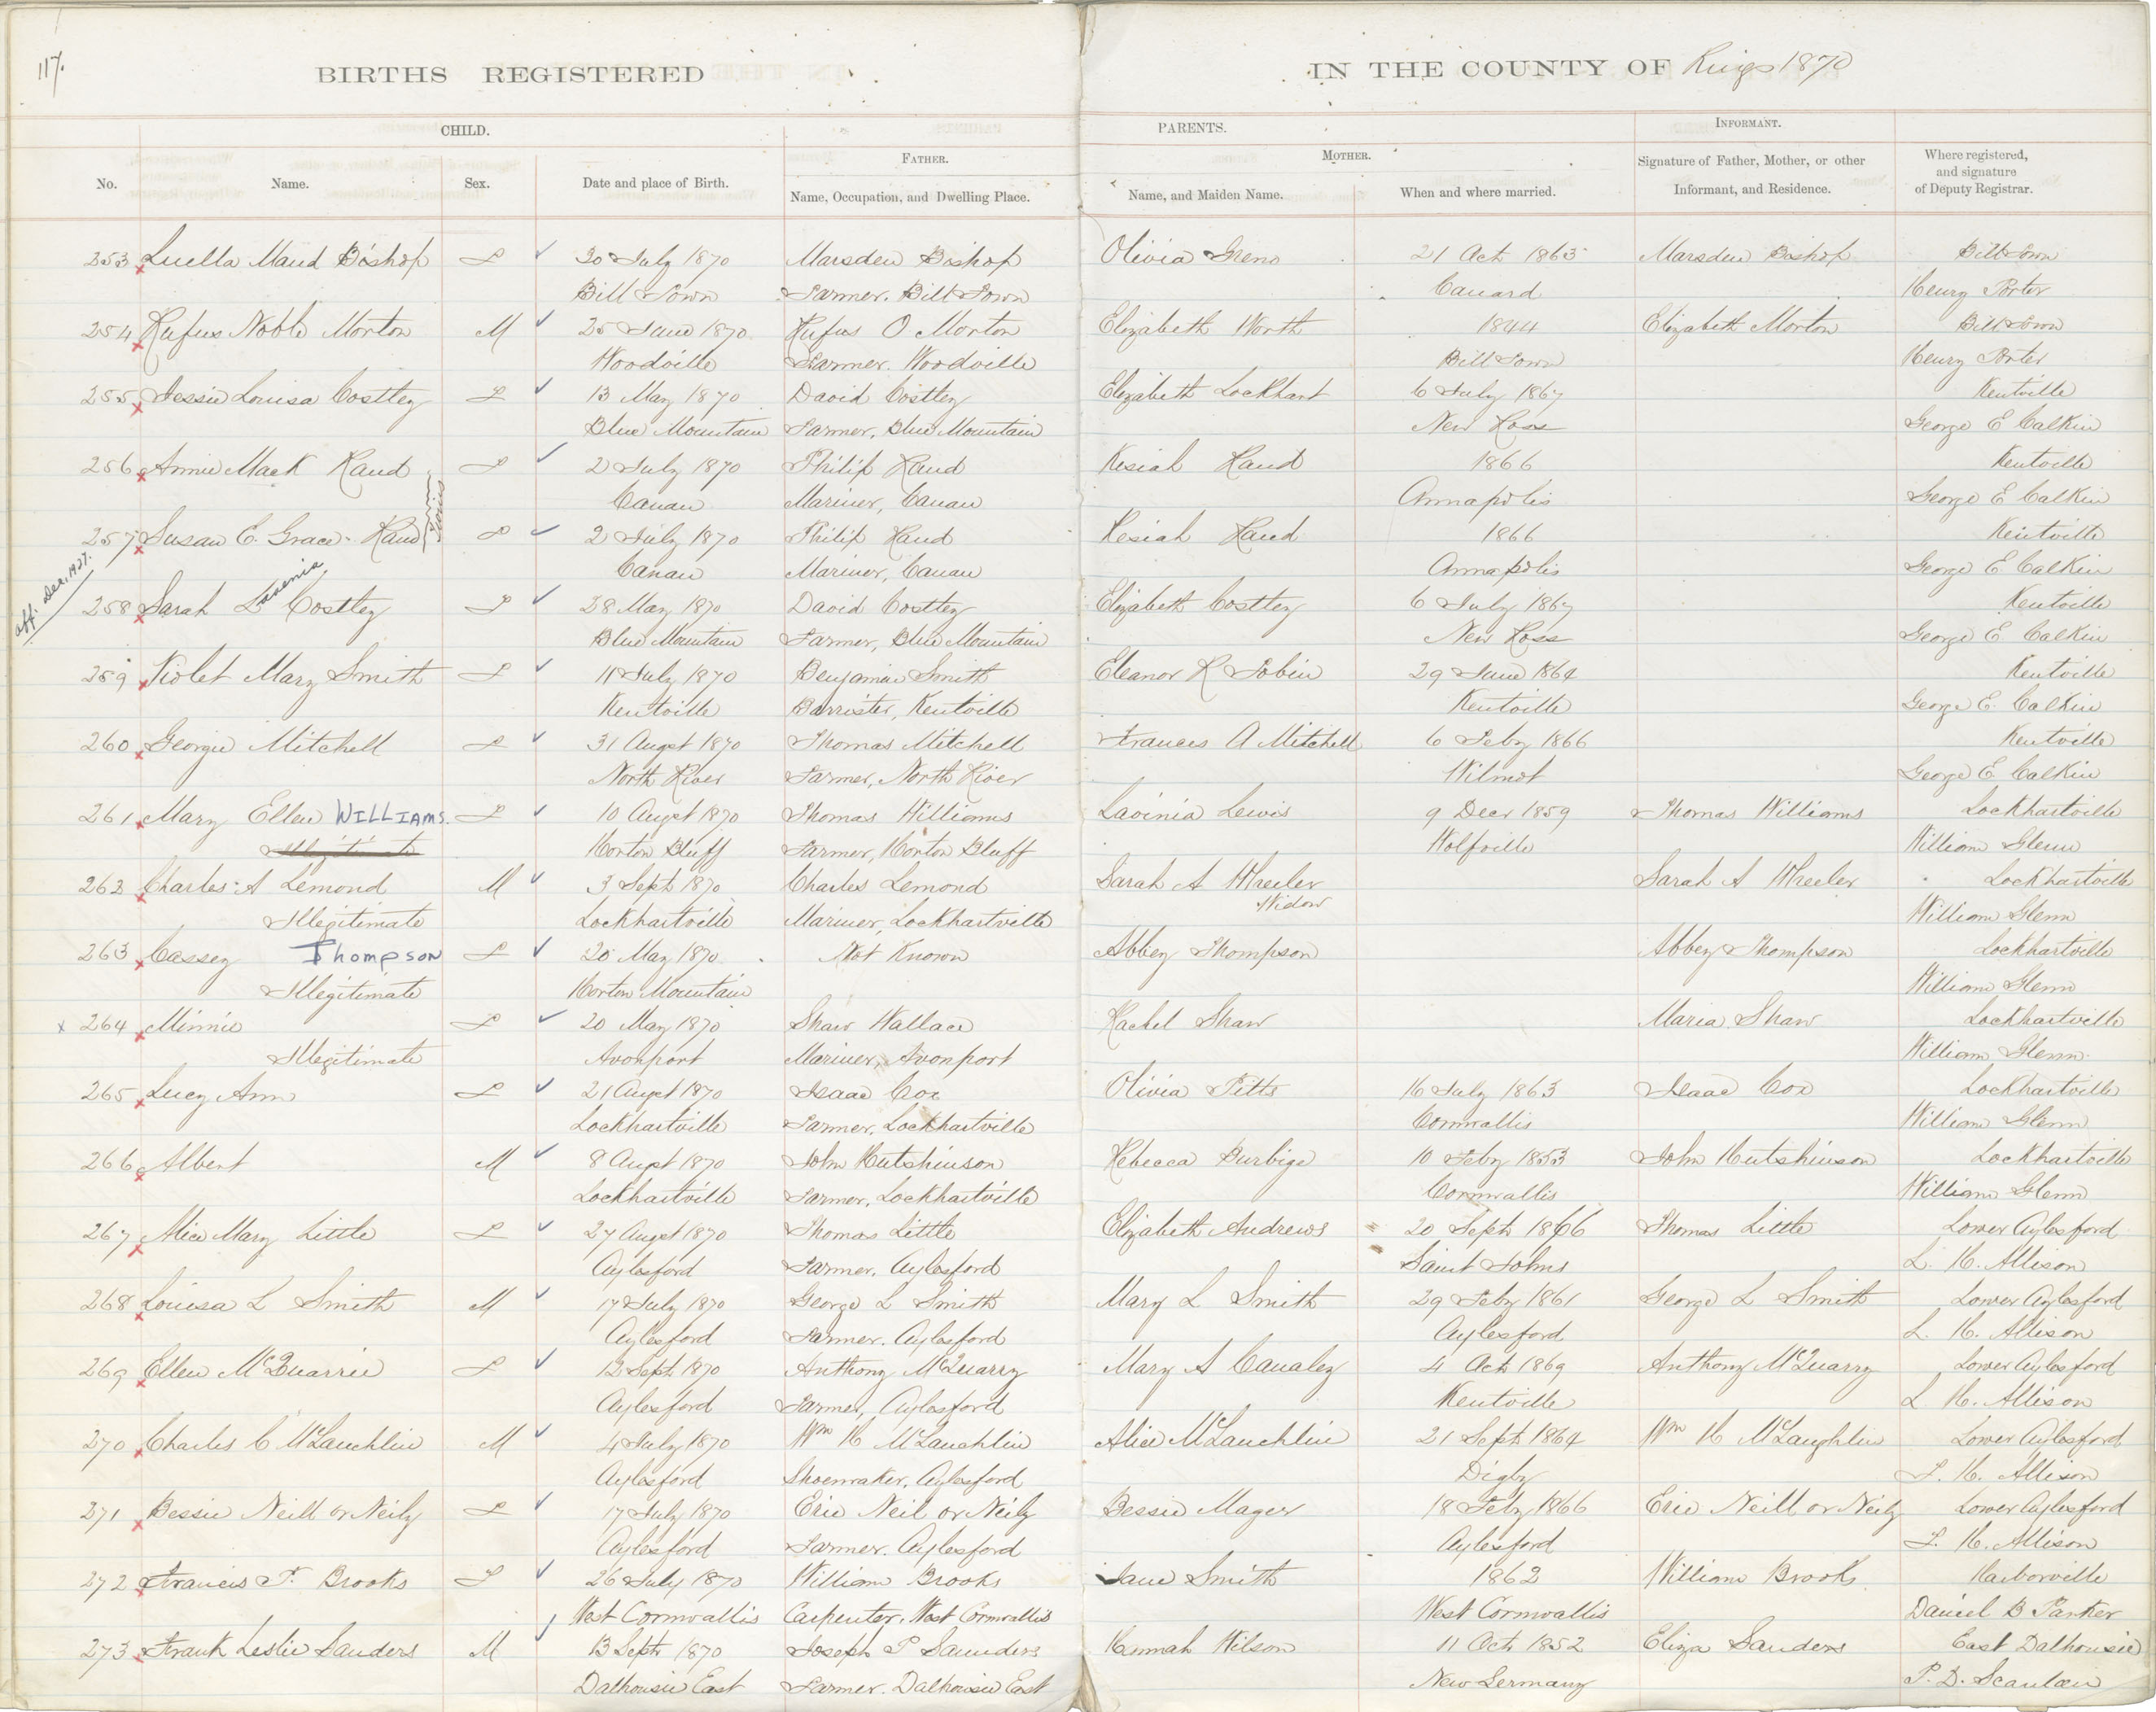 117.
BIRTHS REGISTERED
IN THE COUNTY OF Kings 1870
CHILD.
PARENTS.
INFORMANT.
FATHER.
MOTHER.
No.
Name.
Sex.
Date and place of Birth.
Name, Occupation, and Dwelling Place.
Name, and Maiden Name.
When and where married.
Signature of Father, Mother, or other
Informant, and Residence.
Where registered,
and signature
of Deputy Registrar.
253 Luella Maud Bishop F 30 July 1870 Marsden Bishop Olivia 21 Oct 1863 Marsden Bishop Bill Town
Bill Town Farmer. Bill Town Canard Henry Porter
254 Rufus Noble Morton M 25 June 1870 Rufus O Morton Elizabeth North 1844 Elizabeth Morton Bill Town
Woodville Farmer. Woodville Bill Town Henry Porter
255 Jessie Louisa Costley F 13 May 1870 David Costley Elizabeth Lockhart 6 July 1867 Kentville
Blue Mountain Farmer, Blue Mountain New Ross George E Calkin
256 Annie Mack Rand F 2 July 1870 Philip Rand Kesiah Rand 1866 Kentville
Canan Mariner, Canan Annapolis George E Calkin
257 Susan E. Grace Rand F 2 July 1870 Philip Rand Kesiah Rand 1866 Kentville
Twins
Canan Mariner, Canan Annapolis George E Calkin
aff. Dec. 1927.
258 Sarah Lavenia Costley F 28 May 1870 David Costley Elizabeth Costley 6 July 1867 Kentville
Blue Mountain Farmer, Blue Mountain New Ross George E Calkin
259 Violet Mary Smith F 11 July 1870 Benjamin Smith Eleanor R Tobin 29 June 1864 Kentville
Kentville Barrister, Kentville Kentville George E. Calkin
260 Georgie Mitchell F 31 Augst 1870 Thomas Mitchell Frances A Mitchell 6 Feby 1866 Kentville
North River Farmer, North River Wilmot George E Calkin
261 Mary Ellen WILLIAMS. F 10 Augst 1870 Thomas Williams Lavinia Lewis 9 Decr 1859 Thomas Williams Lockhartville
Illegitimate Horton Bluff Farmer, Horton Bluff Wolfville William Glenn
262 Charles A Lemond M 3 Sept 1870 Charles Lemond Sarah A Wheeler Sarah A Wheeler Lockhartville
Illegitimate Lockhartville Mariner, Lockhartville Widow William Glenn
263 Cassey Thompson F 20 May 1870 Not Known Abbey Thompson Abbey Thompson Lockhartville
Illegitimate Horton Mountain William Glenn
x 264 Minnie F 20 May 1870 Shaw Wallace Rachel Shaw Maria Shaw Lockhartville
Illegitimate Avonport Mariner, Avonport William Glenn
265 Lucy Ann F 21 Augst 1870 Isaac Cox Olivia Pitts 16 July 1863 Isaac Cox Lockhartville
Lockhartville Farmer, Lockhartville Cornwallis William Glenn
266 Albert M 8 Augst 1870 John Hutshinson Rebecca Burbige 10 Feby 1853 John Hutshinson Lockhartville
Lockhartville Farmer, Lockhartville Cornwallis William Glenn
267 Alice Mary Little F 27 Augst 1870 Thomas Little Elizabeth Andrews 20 Sept 1866 Thomas Little Lower Aylesford
Aylesford Farmer. Aylesford Saint Johns L. H. Allison
268 Louisa L Smith M 17 July 1870 George L Smith Mary L Smith 29 Feby 1861 George L Smith Lower Aylesford
Aylesford Farmer. Aylesford Aylesford L. H. Allison
269 Ellen McQuarrie F 12 Sept 1870 Anthony McQuarry Mary A Canaley 4 Oct 1869 Anthony McQuarry Lower Aylesford
Aylesford Farmer, Aylesford Kentville L H. Allison
270 Charles C McLauchlin M 4 July 1870 Wm H McLauchlin Alice McLauchlin 21 Sept 1864 Wm H McLaughlin Lower Aylesford
Aylesford Shoemaker, Aylesford Digby L. H. Allison
271 Bessie Neill or Neily F 17 July 1870 Eric Neil or Neily Bessie Mager 18 Feby 1866 Eric Neill or Neily Lower Aylesford
Aylesford Farmer. Aylesford Aylesford L. H. Allison
272 Francis T. Brooks F 26 July 1870 William Brooks Jane Smith 1862 William Brooks Harborville
West Cornwallis Carpenter, West Cornwallis West Cornwallis Daniel B Parker
273 Frank Leslie Sanders M 13 Sept 1870 Joseph P Saunders Hannah Wilson 11 Oct 1852 Eliza Sanders East Dalhousie
Dalhousie East Farmer. Dalhousie East New Germany P. D. Scanlan